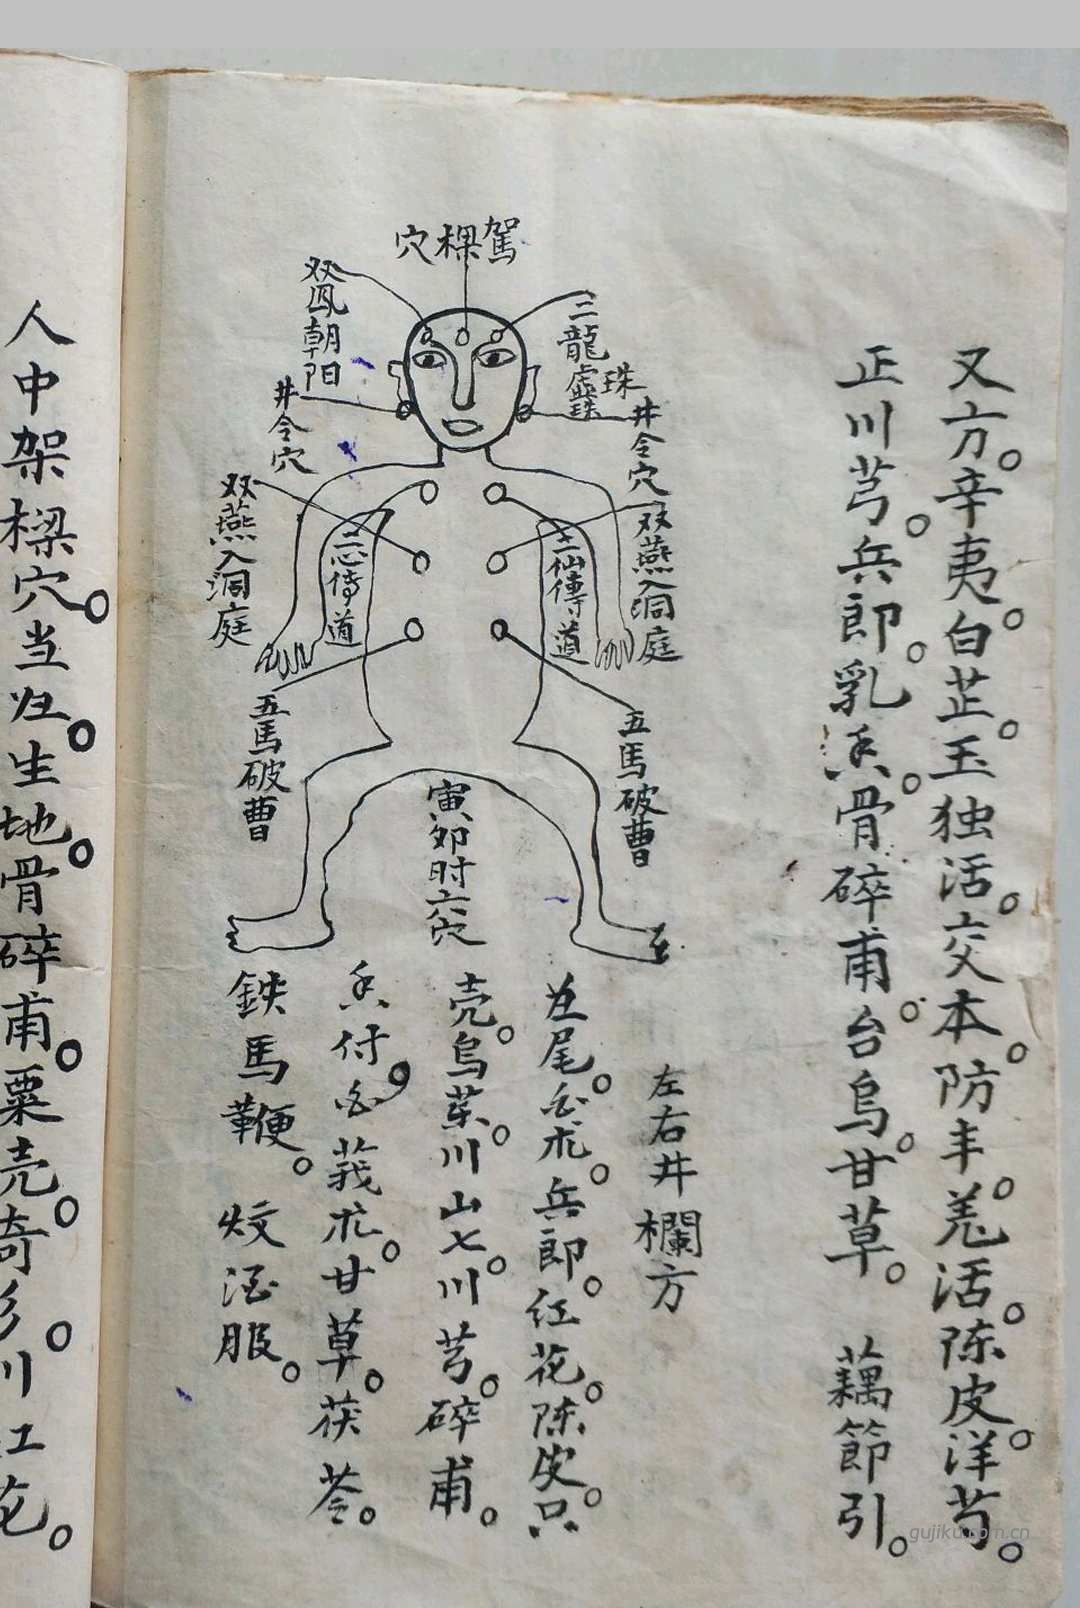 又方。辛夷。白芷。玉独活。交本。防丰。羌活。陈皮。洋芍。
正川芎。兵郎。乳香。骨碎甫。台乌。甘草。 藕節引。
駕樑穴
二龍虚珠
珠
双鳳朝阳
井令穴
井令穴
双燕入洞庭
双燕入洞庭
二仙傳道
二心傳道
五馬破曹
五馬破曹
寅卯时六穴
左右井欄方
归尾。白朮。兵郎。红花。陈皮。只
壳。乌药。川山七。川芎。碎甫。
香付。白莪朮。甘草。茯苓。
鉄馬鞭。 炆酒服。
人中架樑穴。当归。生地。骨碎甫。粟壳。
川红花。
gujiku.com.cn